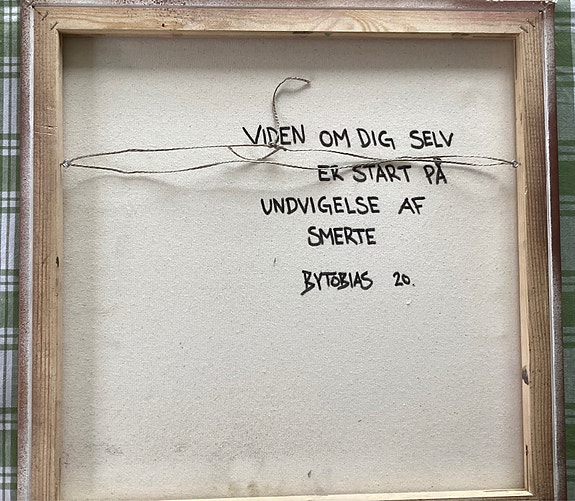 VIDEN OM DIG SELV
ER START PÅ
UNDVIGELSE AF
SMERTE
BYTOBIAS 20.